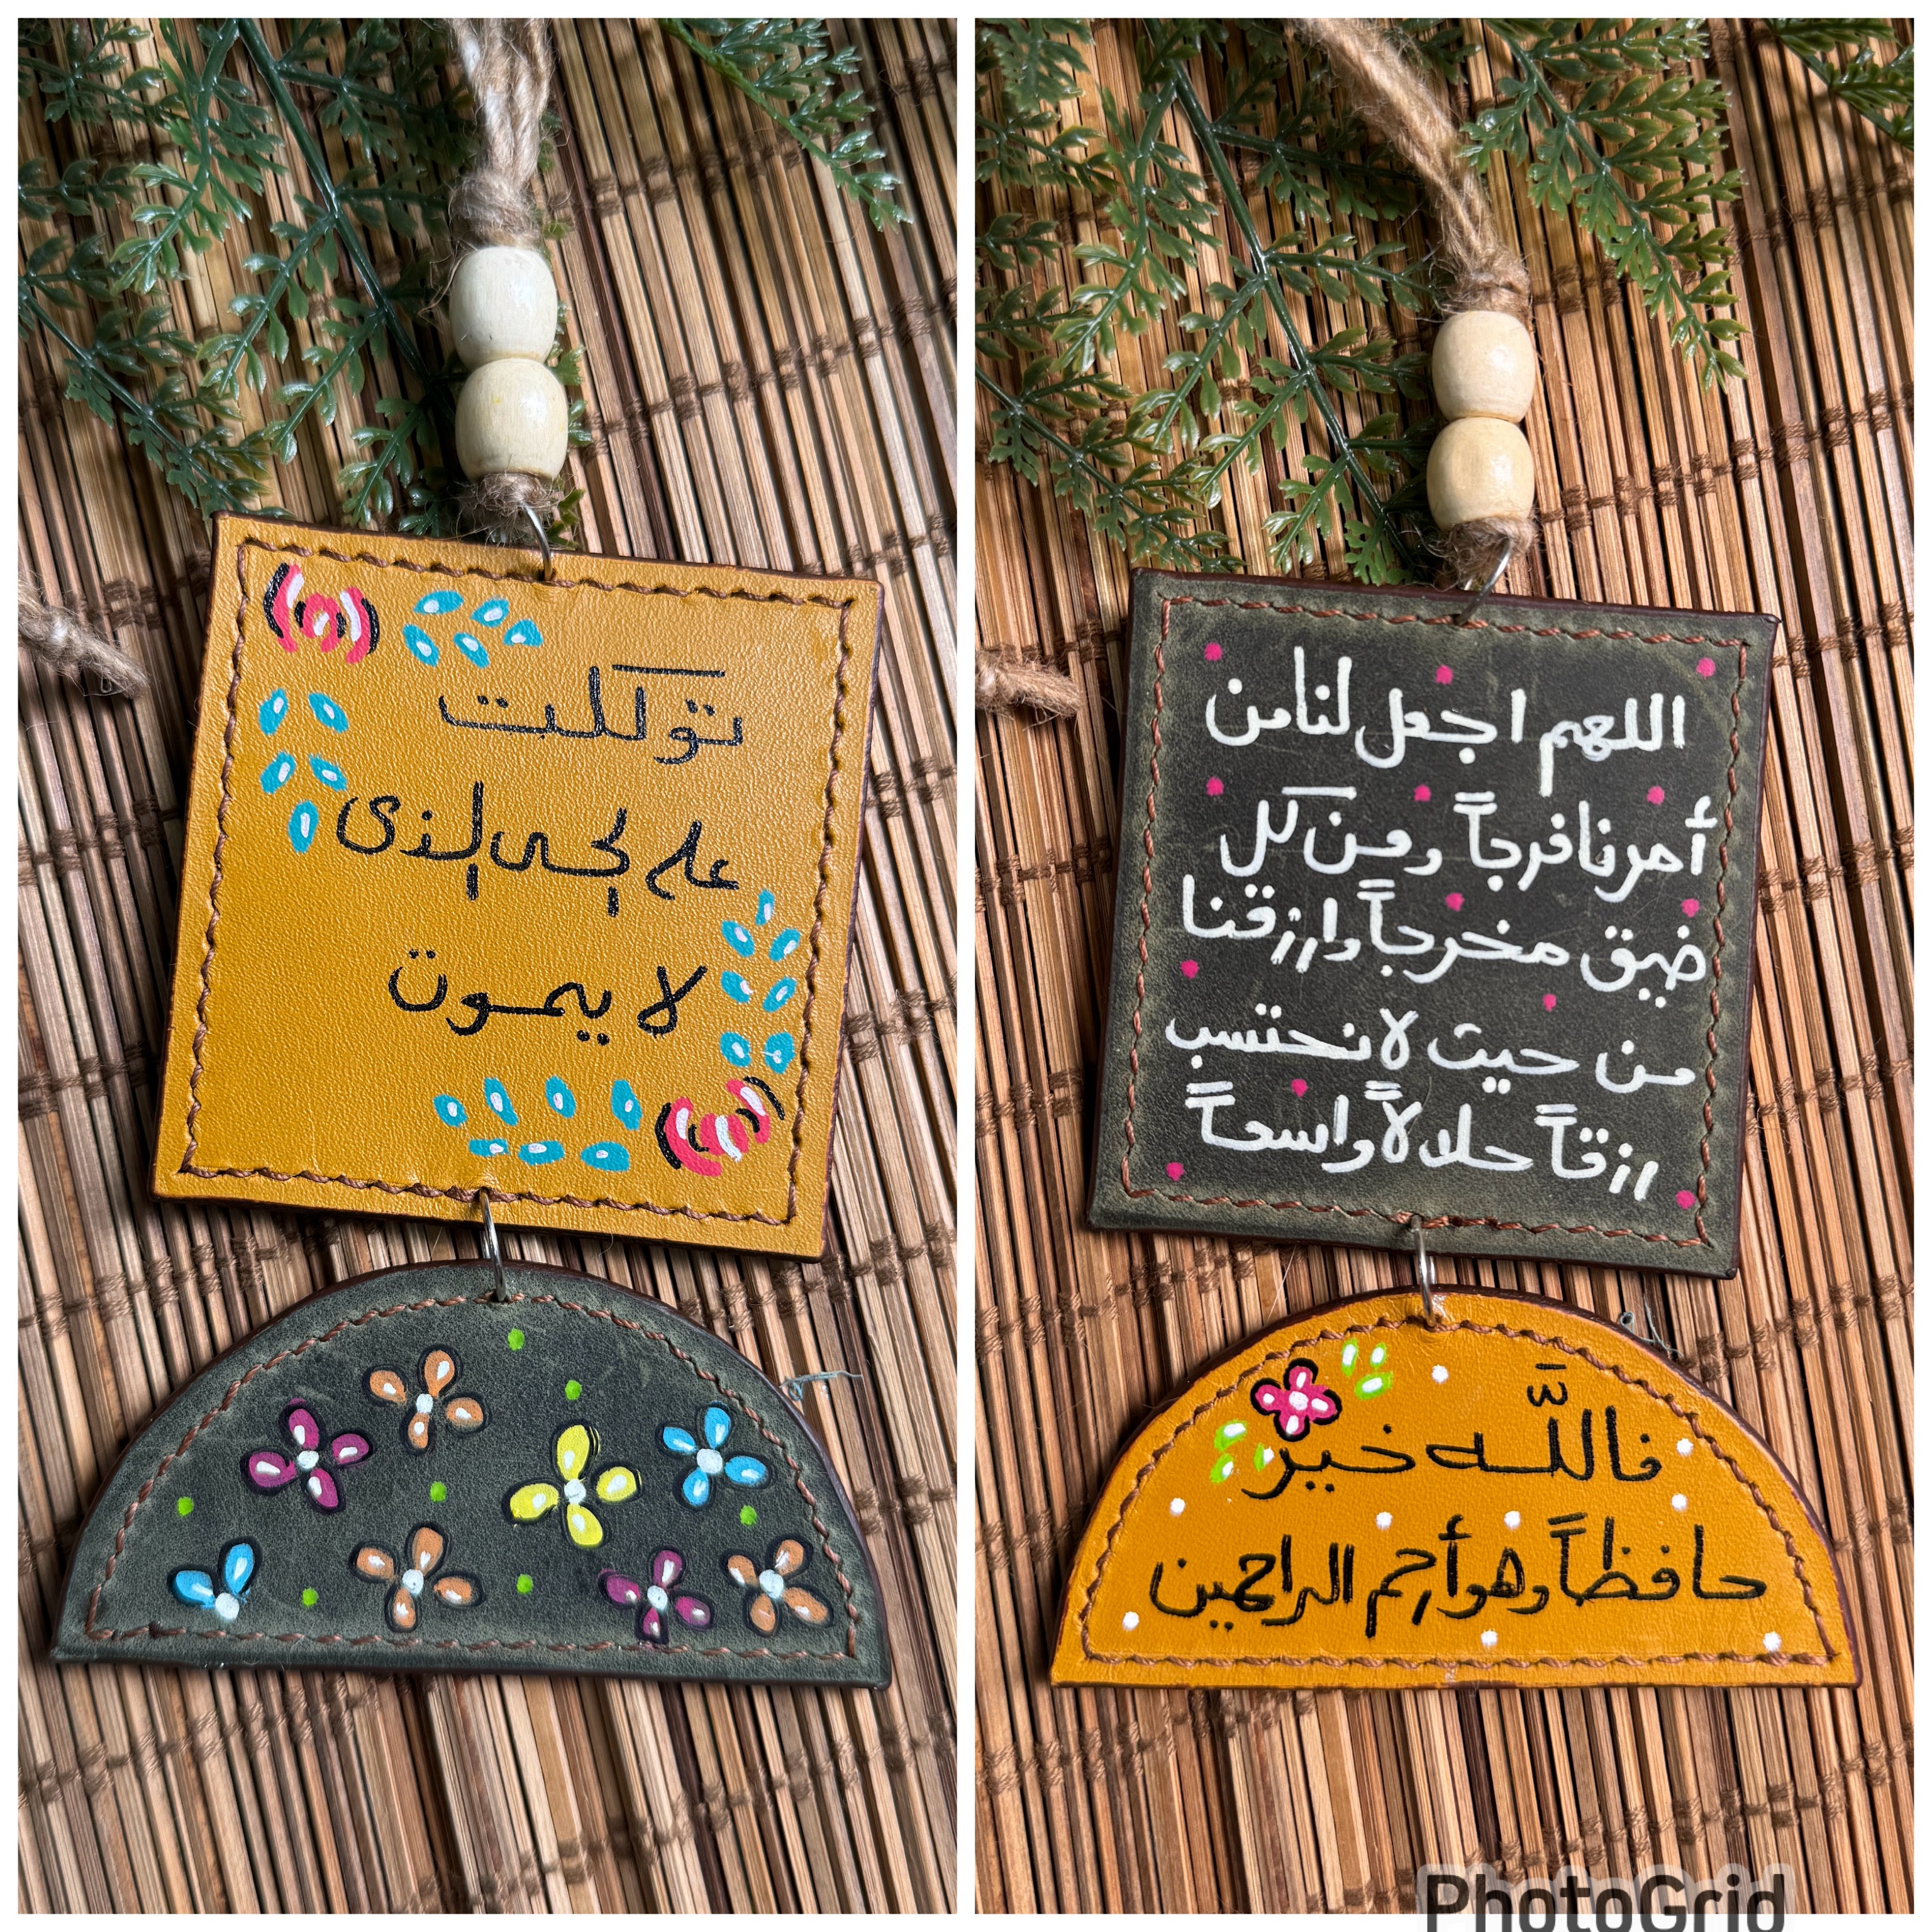 توكلت
على الحى الذى
لا يموت
اللهم اجعل لنا من
أمرنا فرجاً ومن كل
ضيق مخرجاً وارزقنا
من حيث لا نحتسب
ارزقاً حلالاً واسعاً
فاللّٰه خير
حافظاً وهو أرحم الراحمين
PhotoGrid